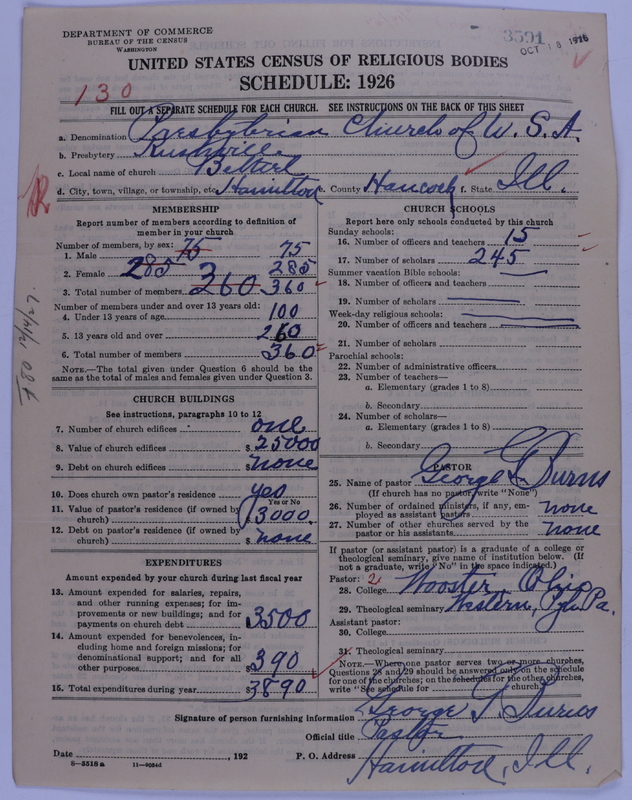 DEPARTMENT OF COMMERCE
BUREAU OF THE CENSUS
WASHINGTON
3591
OCT 18 1926
UNITED STATES CENSUS OF RELIGIOUS BODIES
SCHEDULE: 1926
130
FILL OUT A SEPARATE SCHEDULE FOR EACH CHURCH. SEE INSTRUCTIONS ON THE BACK OF THIS SHEET
a. Denomination Presbyterian Church of U.S.A.
b. Presbytery Rushville
c. Local name of church Bethel
d. City, town, village, or township, etc. Hamilton e. County Hancock f. State Ill.
MEMBERSHIP
Report number of members according to definition of member in your church
Number of members, by sex: 75
1. Male 75
2. Female 285 285
3. Total number of members 360 360
Number of members under and over 13 years old:
4. Under 13 years of age 100
5. 13 years old and over 260
6. Total number of members 360
NOTE.—The total given under Question 6 should be the same as the total of males and females given under Question 3.
CHURCH BUILDINGS
See instructions, paragraphs 10 to 12
7. Number of church edifices one
8. Value of church edifices $ 25000
9. Debt on church edifices $ none
10. Does church own pastor's residence yes
Yes or No
11. Value of pastor's residence (if owned by church) $ 3000.
12. Debt on pastor's residence (if owned by church) $ none
EXPENDITURES
Amount expended by your church during last fiscal year
13. Amount expended for salaries, repairs, and other running expenses; for improvements or new buildings; and for payments on church debt $ 3500
14. Amount expended for benevolences, including home and foreign missions; for denominational support; and for all other purposes $ 390
15. Total expenditures during year $ 3890
CHURCH SCHOOLS
Report here only schools conducted by this church
Sunday schools:
16. Number of officers and teachers 15
17. Number of scholars 245
Summer vacation Bible schools:
18. Number of officers and teachers
19. Number of scholars
Week-day religious schools:
20. Number of officers and teachers
21. Number of scholars
Parochial schools:
22. Number of administrative officers
23. Number of teachers—
a. Elementary (grades 1 to 8)
b. Secondary
24. Number of scholars—
a. Elementary (grades 1 to 8)
b. Secondary
PASTOR
25. Name of pastor George L. Burns
(If church has no pastor, write "None")
26. Number of ordained ministers, if any, employed as assistant pastors none
27. Number of other churches served by the pastor or his assistants none
If pastor (or assistant pastor) is a graduate of a college or theological seminary, give name of institution below. (If not a graduate, write "No" in the space indicated.)
Pastor: 2
28. College Wooster Ohio
29. Theological seminary Western, Pa.
Assistant pastor:
30. College
31. Theological seminary
NOTE.—Where one pastor serves two or more churches, Questions 28 and 29 should be answered only on the schedule for one of the churches; on the schedules for the other churches, write "See schedule for church."
Signature of person furnishing information George L. Burns
Official title Pastor
Date , 192 P. O. Address Hamilton, Ill.
8-5518a 11-9054d
12/14/27